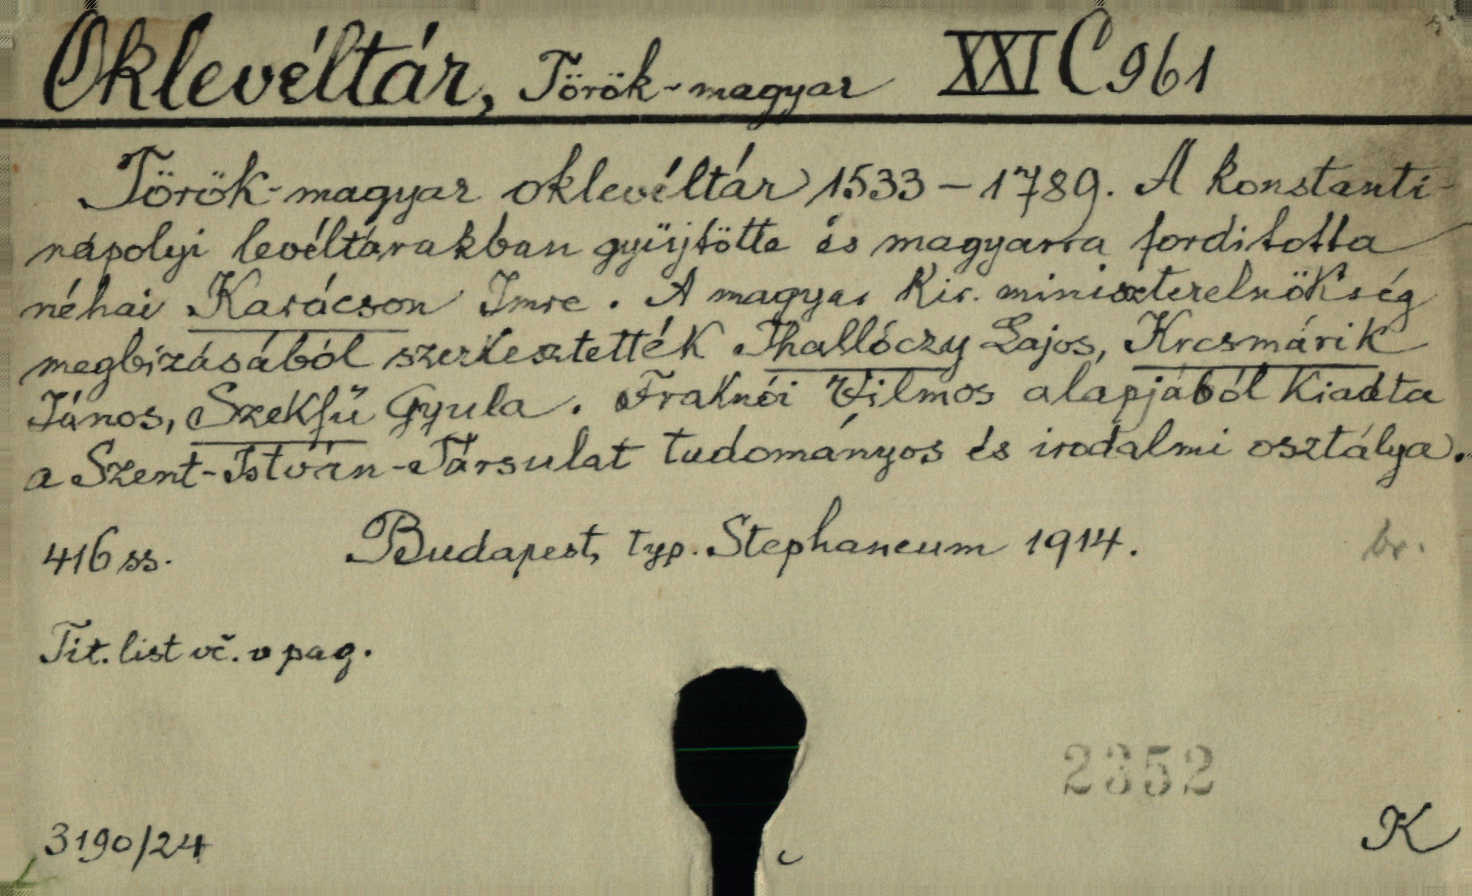 Oklevéltár, Török-magyar XXI C 961
Török-magyar oklevéltár 1533-1789. A konstanti-
nápolyi levéltárakban gyüjtötte és magyarra forditotta
néhai Karácson Imre. A magyar kir. miniszterelnökség
megbizásából szerkesztették Thallóczy Lajos, Krcsmárik
János, Szekfű Gyula. Fraknói Vilmos alapjából kiadta
a Szent-István-Társulat tudományos és irodalmi osztálya.
416 ss. Budapest, typ. Stephaneum 1914. br.
Tit. list vč. v pag.
2352
3190/24 K